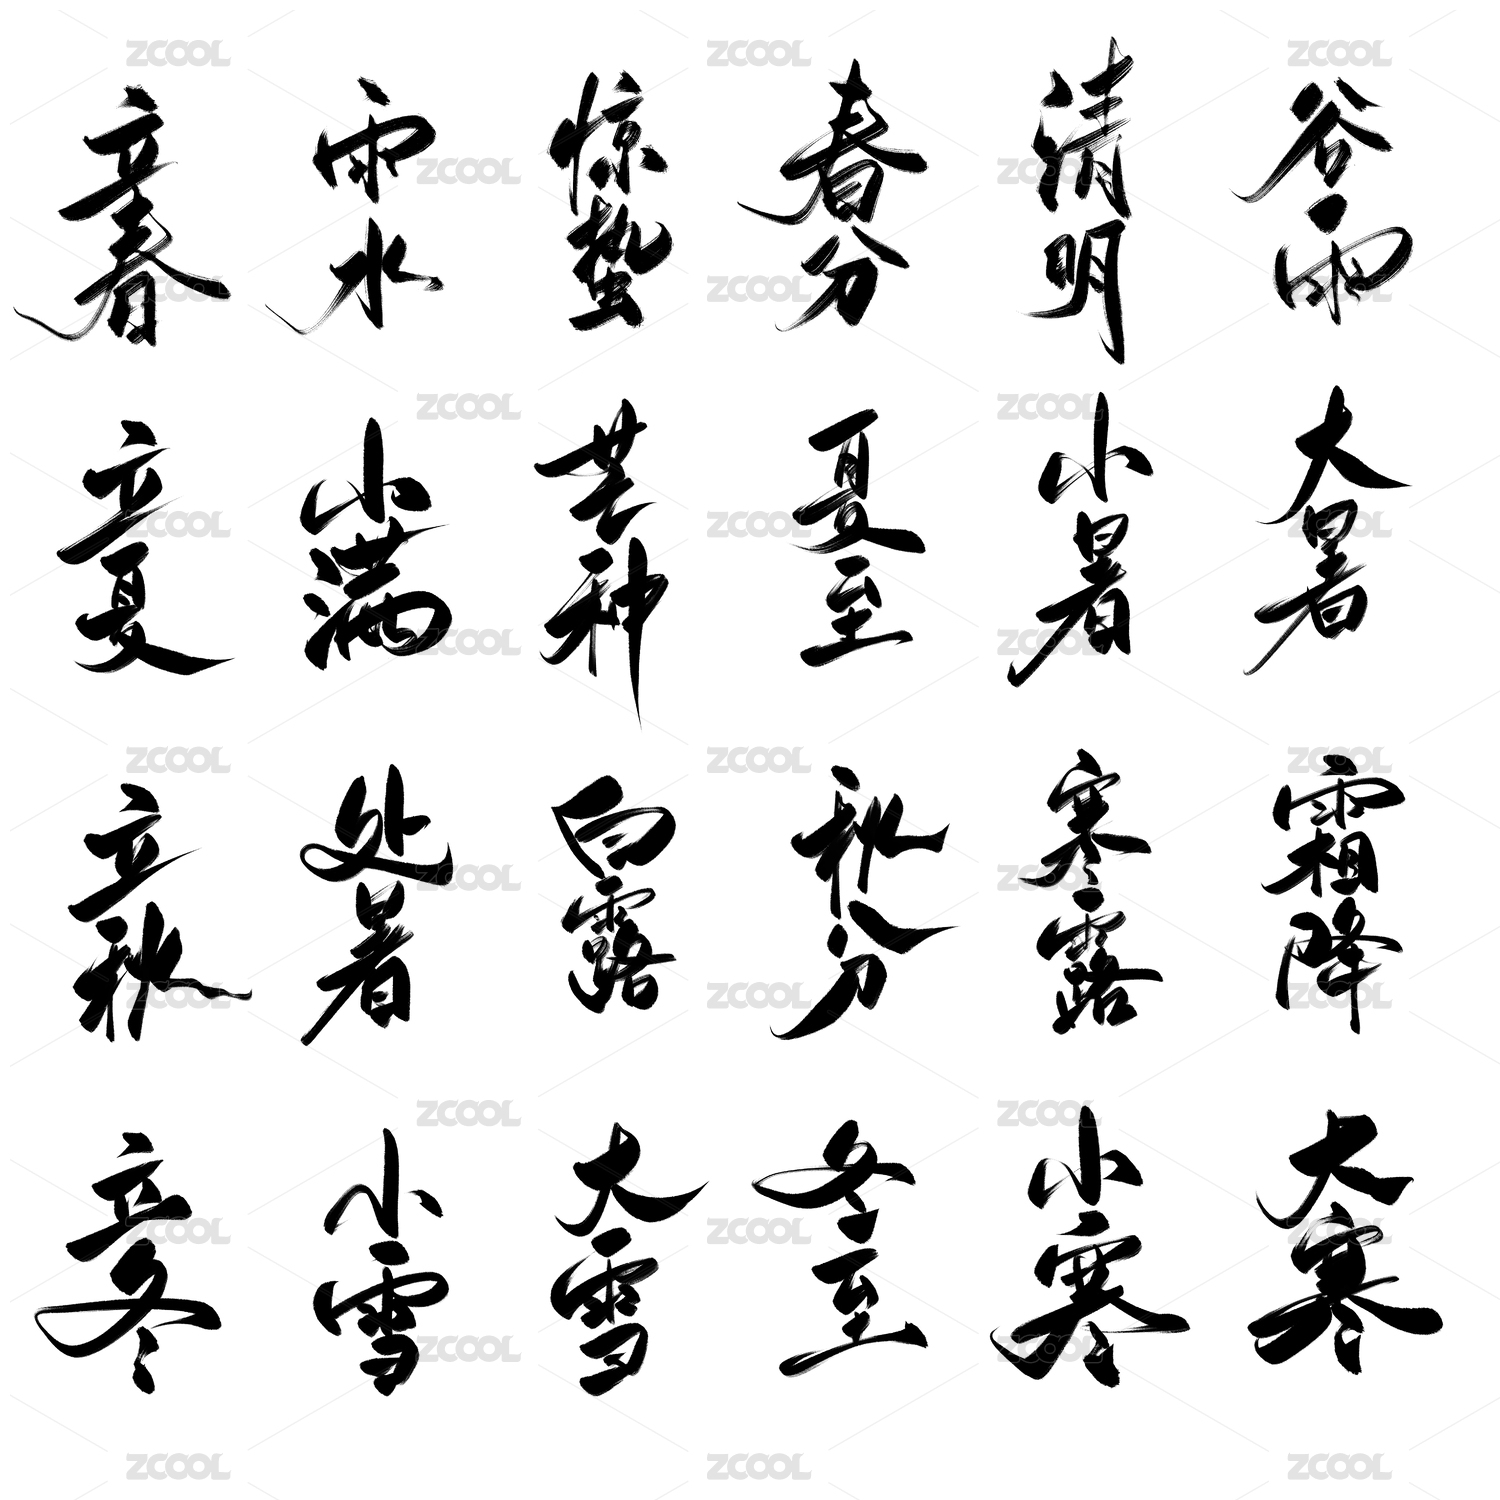 立春
雨水
惊蛰
春分
清明
谷雨
立夏
小满
芒种
夏至
小暑
大暑
立秋
处暑
白露
秋分
寒露
霜降
立冬
小雪
大雪
冬至
小寒
大寒
ZCOOL